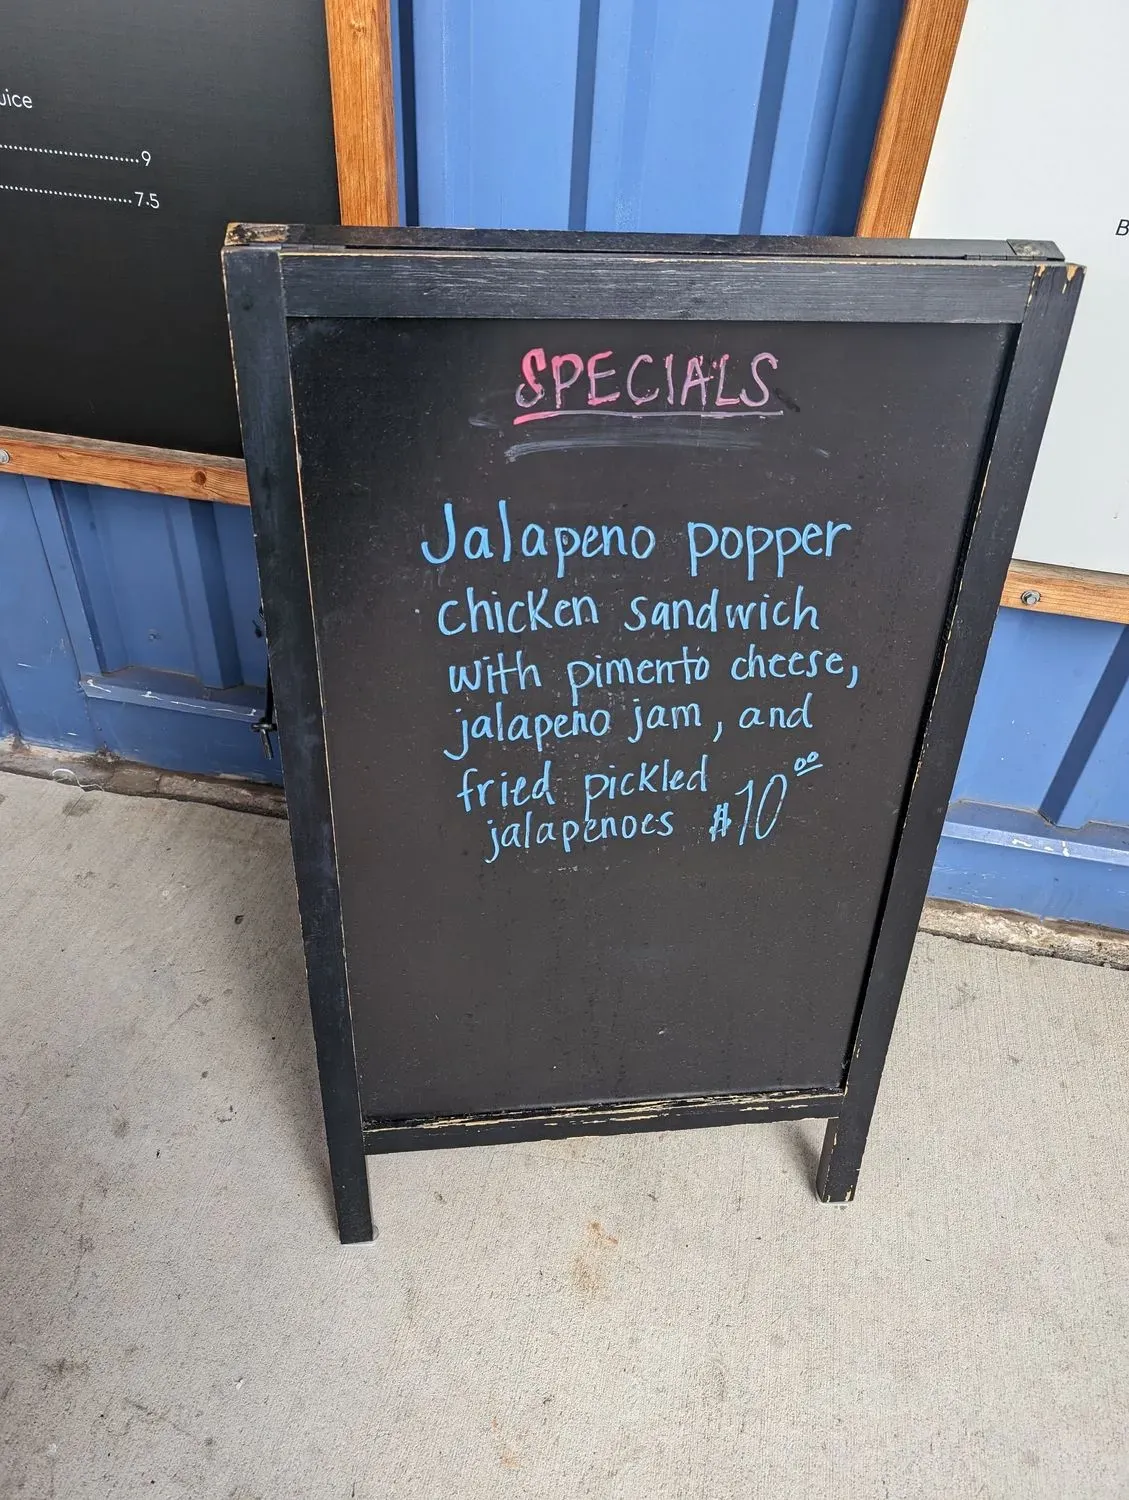 9
7.5
SPECIALS
Jalapeno popper
chicken sandwich
with pimento cheese,
jalapeno jam, and
fried pickled
jalapenoes $10.00